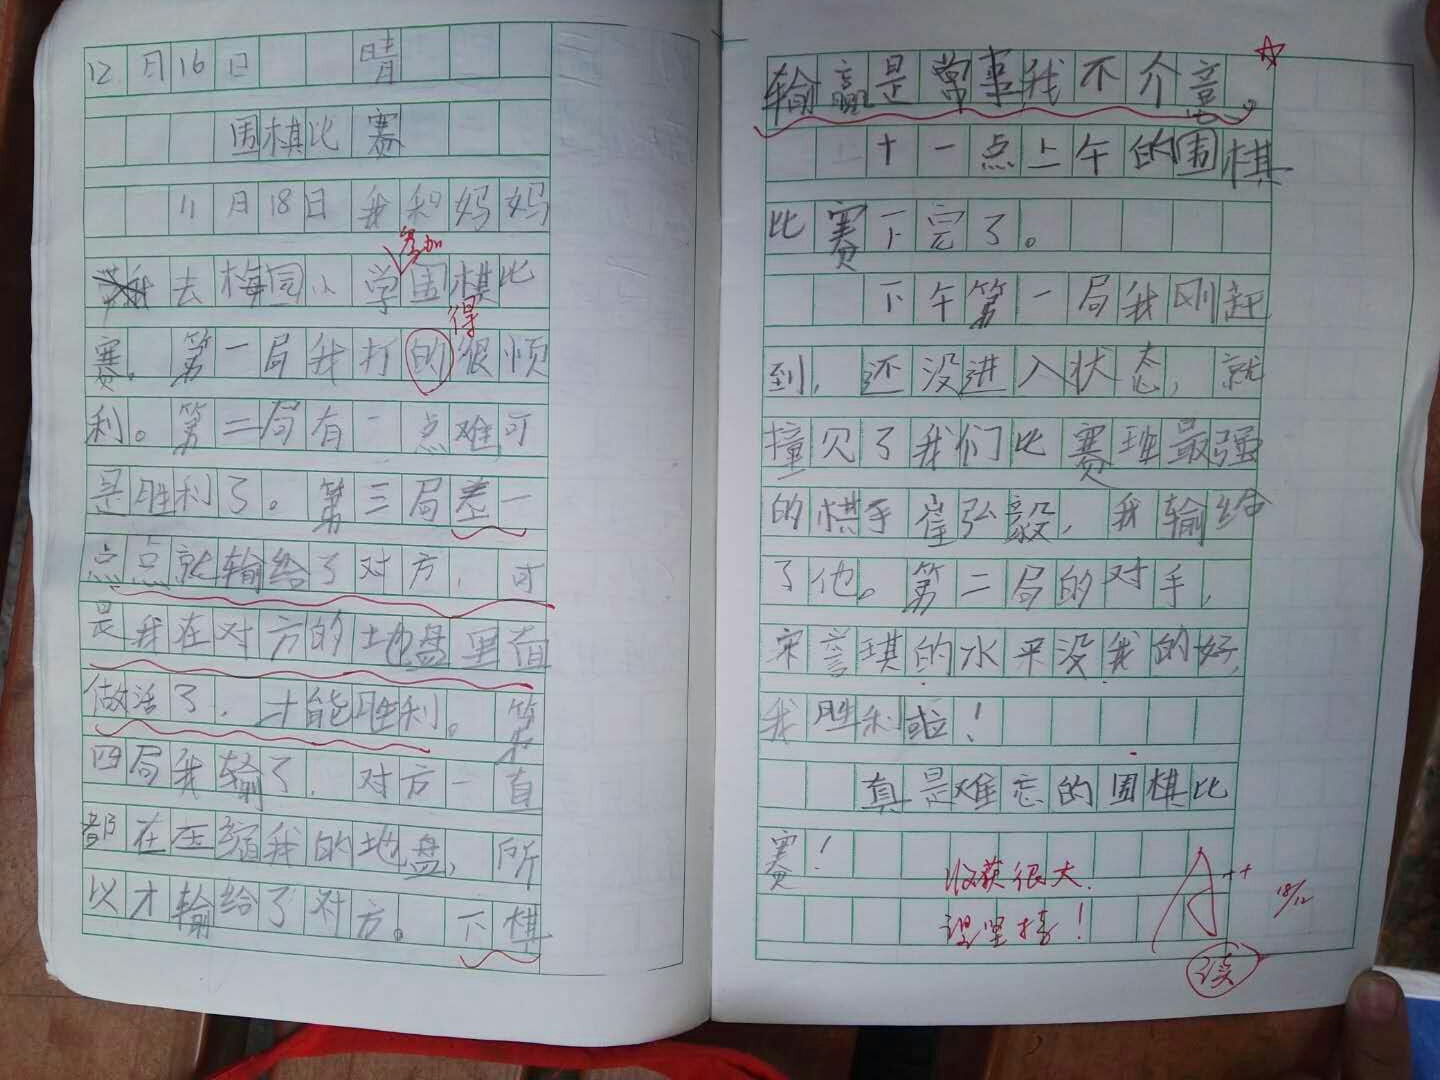 12月16日 晴
围棋比赛
11月18日我和妈妈
参加
去梅园小学围棋比
得
赛。第一局我打的很顺
利。第二局有一点难可
是胜利了。第三局差一
点点就输给了对方，可
是我在对方的地盘里面
做活了，才能胜利。第
四局我输了，对方一直
都在压缩我的地盘，所
以才输给了对方。下棋
输赢是常事我不介意。
十一点上午的围棋
比赛下完了。
下午第一局我刚赶
到，还没进入状态，就
撞见了我们比赛班最强
的棋手崔弘毅，我输给
了他。第二局的对手，
宋誉琪的水平没我的好，
我胜利啦！
真是难忘的围棋比
赛！
收获很大，
坚持！
A++
18/12
读